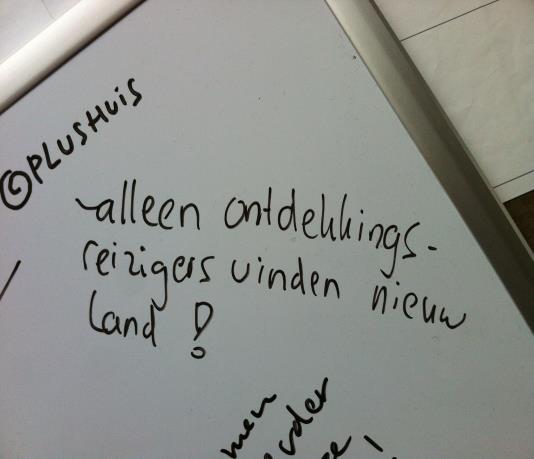 @PLUSHUIS
~alleen ontdekkings-
reizigers vinden nieuw
land !
men